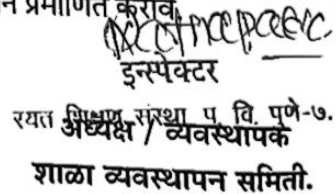 न प्रमाणित करावे
इन्स्पेक्टर
रयत शिक्षण संस्था प. वि. पुणे-७.
अध्यक्ष / व्यवस्थापक
शाळा व्यवस्थापन समिती.